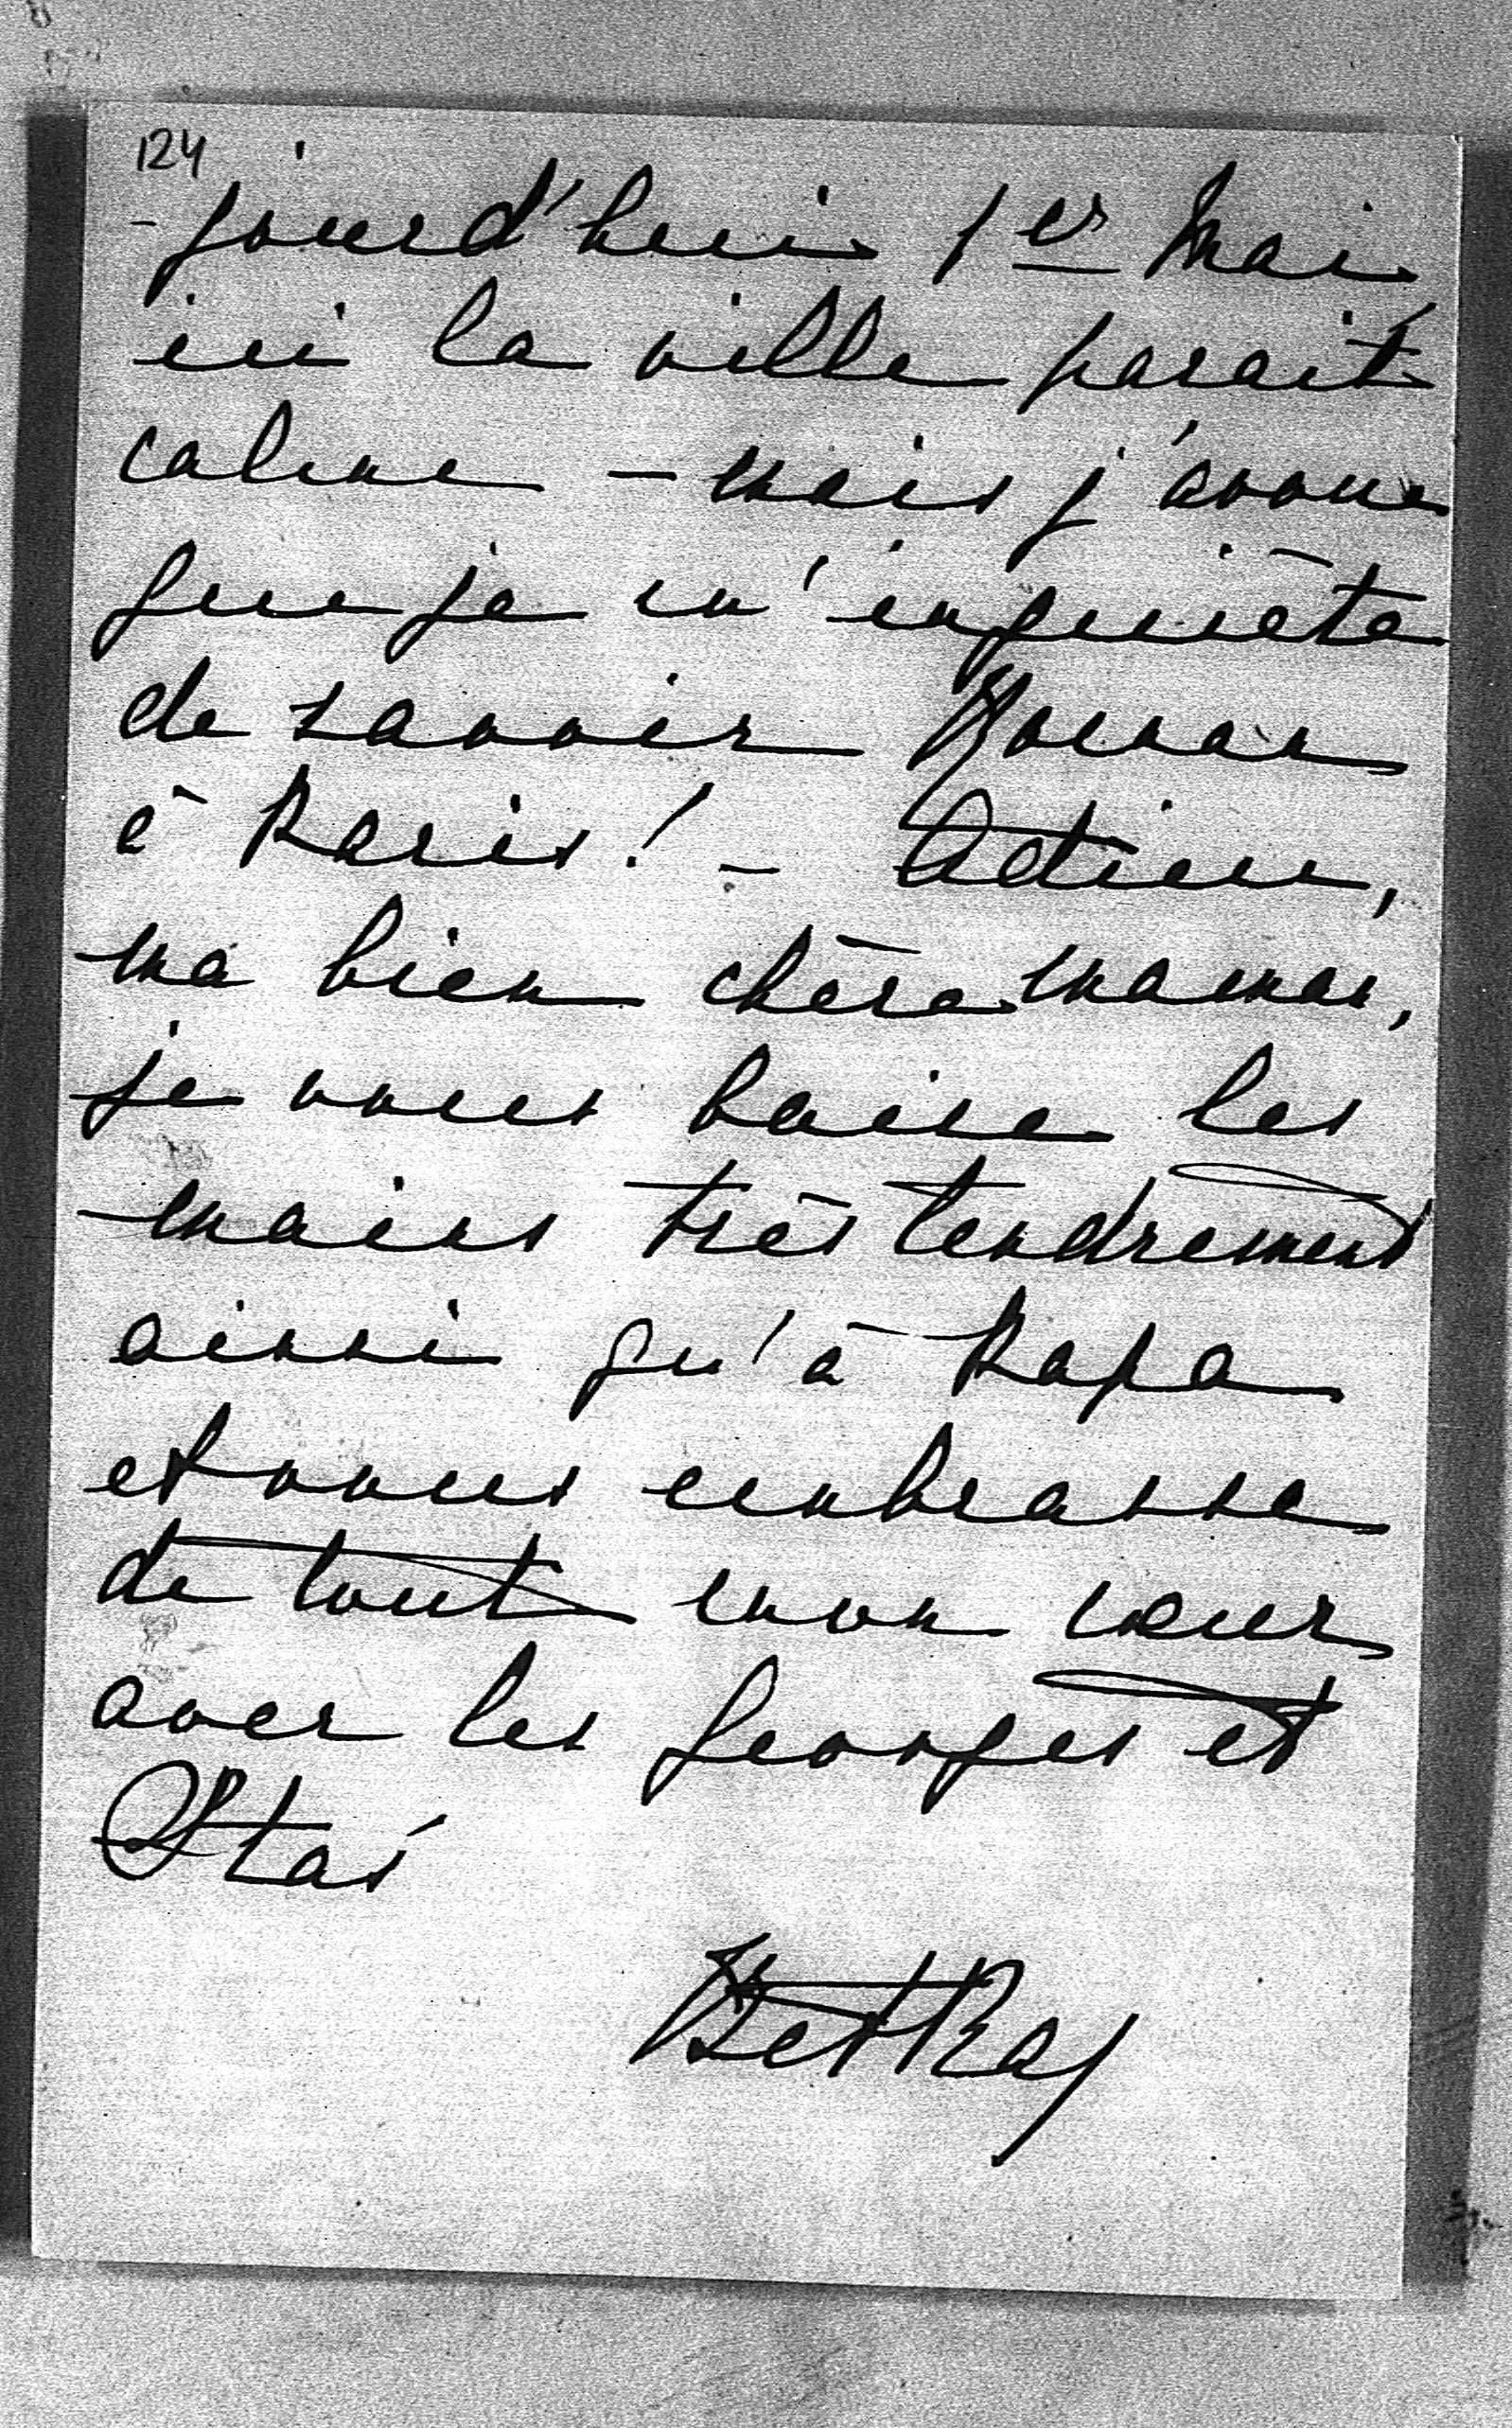 124
- jourd'hui 1er Mai
ici la ville parait
calme - mais j'avoue
que je m'inquiète
de savoir Roman
à Paris! - Adieu,
ma bien chère maman,
je vous baise les
mains très tendrement
ainsi qu'à Papa
et vous embrasse
de tout mon cœur
avec les Georges et
Staś
Betka